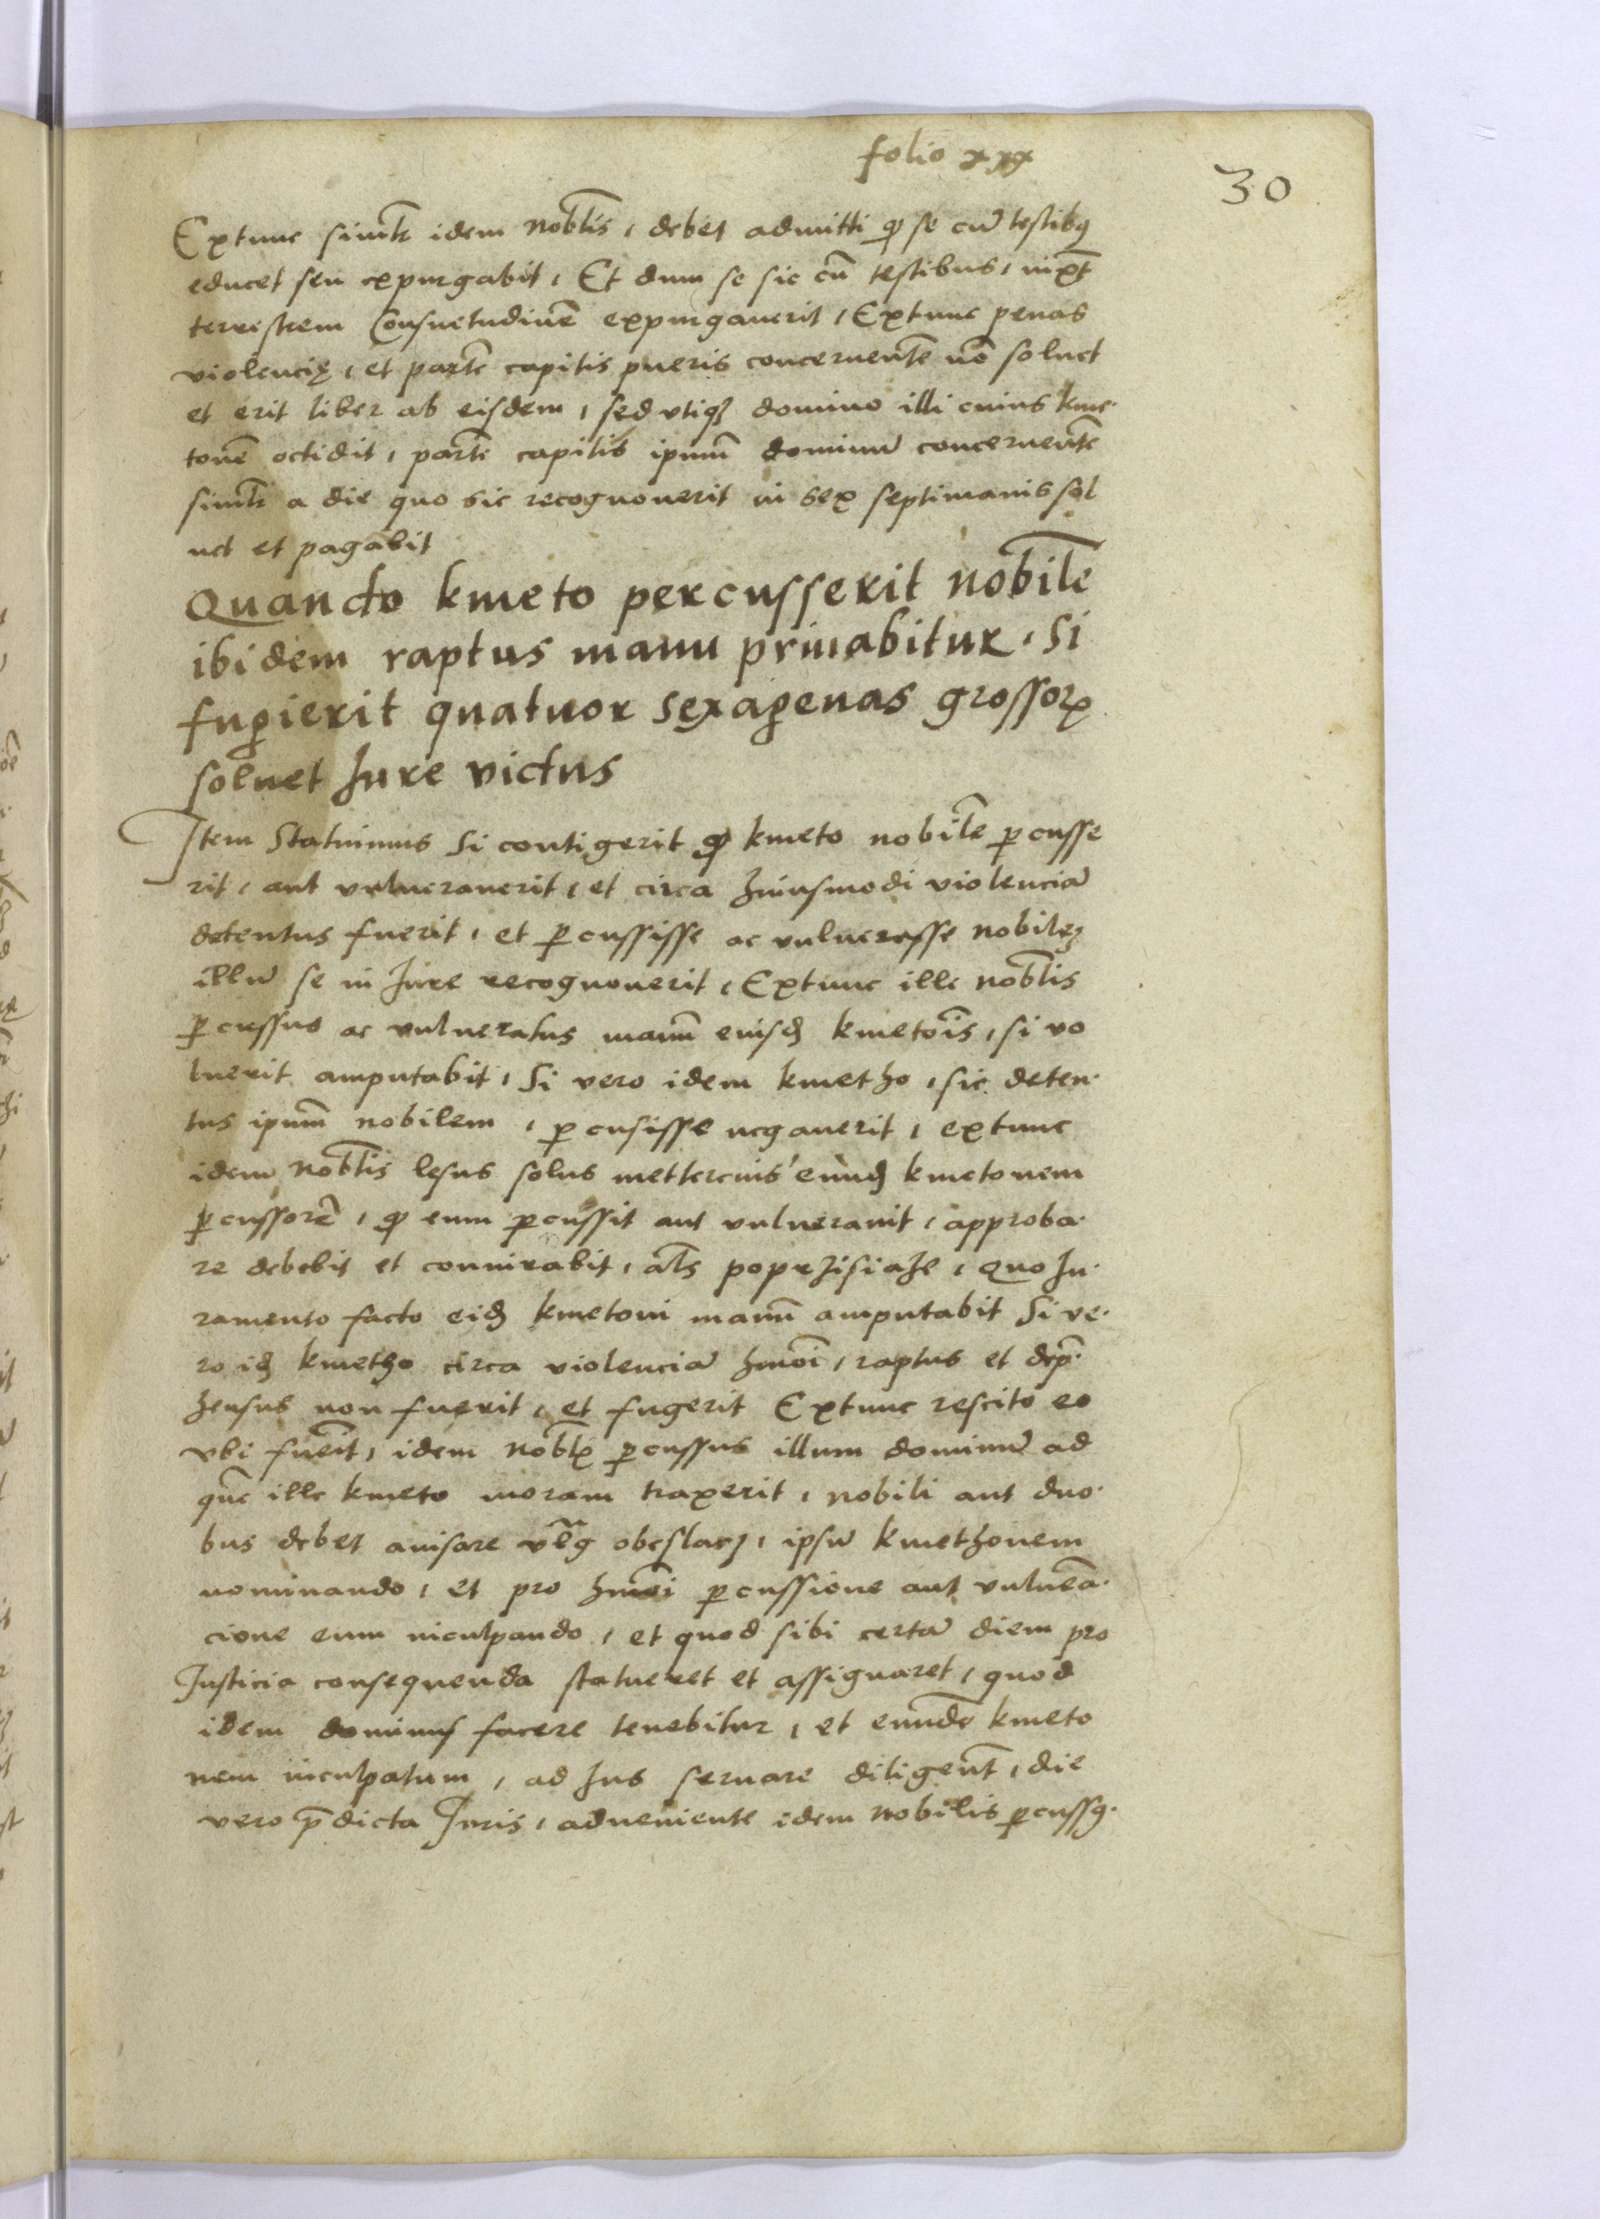 folio xxx
30
Extunc simłr idem nobłis, debet admitti ꝙ se cū testibꝰ
educet seu expurgabit, Et dum se sic cū testibus, iuxᵗ
terrestrem Consuetudinē expurgauerit, Extunc penas
violencię, et partē capitis pueris concernentē nō soluet
et erit liber ab eisdem, sed vtiqꝫ domino illi cuius kme
tonē occidit, partē capitis ipsum̄ dominū concernentē
simłr a die quo sic recognouerit in sex septimanis sol
uet et pagabit
Quando kmeto percusserit nobilē
ibidem raptus manu priuabitur. Si
fugierit quatuor sexagenas grossoꝝ
soluet Jure victus
Item Statuimus Si contigerit ꝙ kmeto nobilē ꝑcusse
rit, aut vulnerauerit, et circa huiusmodi violenciā
detentus fuerit, et ꝑcussisse ac vulnerasse nobileꝫ
illū se in Jure recognouerit, Extunc ille nobłis
ꝑcussus ac vulneratus manū eiusd̄ kmetoīs, si vo
luerit amputabit, Si vero idem kmetho, sic deten
tus ipsum̄ nobilem, ꝑcusisse negauerit, extunc
idem nobłis lesus solus mettercius eund̄ kmetonem
ꝑcussorē, ꝙ eum ꝑcussit aut vulnerauit, approba
re debebit et coniurabit, ałs poprzisiaze, Quo Ju
ramento facto eid̄ kmetoni manū amputabit Si ve
ro id̄ kmetho circa violenciā hmōi, raptus et dep̄
hensus non fuerit, et fugerit Extunc rescito eo
vbi fuērit, idem nobłꝭ ꝑcussus illum dominū ad
quē ille kmeto moram traxerit, nobili aut duo
bus debet auisare vłg obeslacz, ipsū kmethonem
nominando, et pro hmōi ꝑcussione aut vulnēa
cione eum inculpando, et quod sibi certā diem pro
Justicia consequenda statueret et assignaret, quod
idem dominus facere tenebitur, et eundē kmeto
nem inculpatum, ad Jus seruare diligent̄, die
vero p̄dicta Juris, adueniente idem nobilis ꝑcussꝰ